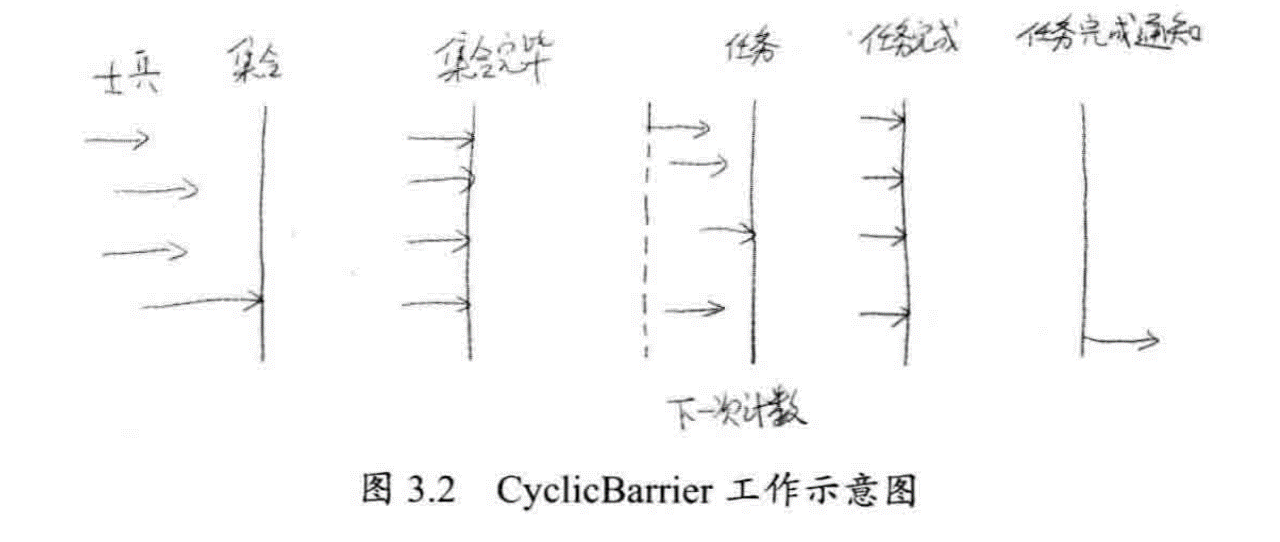 士兵 集合 集合完毕 任务 任务完成 任务完成通知
下一次计数
图 3.2 CyclicBarrier 工作示意图